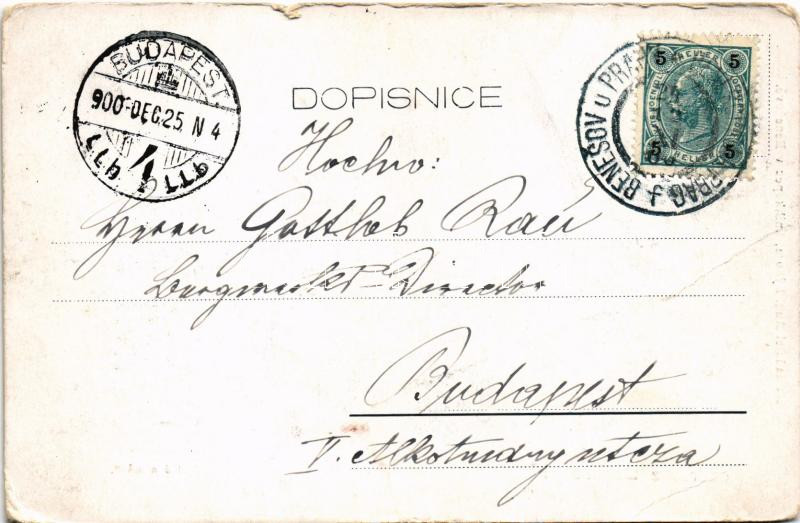 BUDAPEST.
900 DEC. 25. N 4
DOPISNICE
BENEŠOV u PRA
5 5
5 5
Hochw:
Herrn Gottlieb Rau
Bergwerks-Director
Budapest
V. Alkotmány utcza